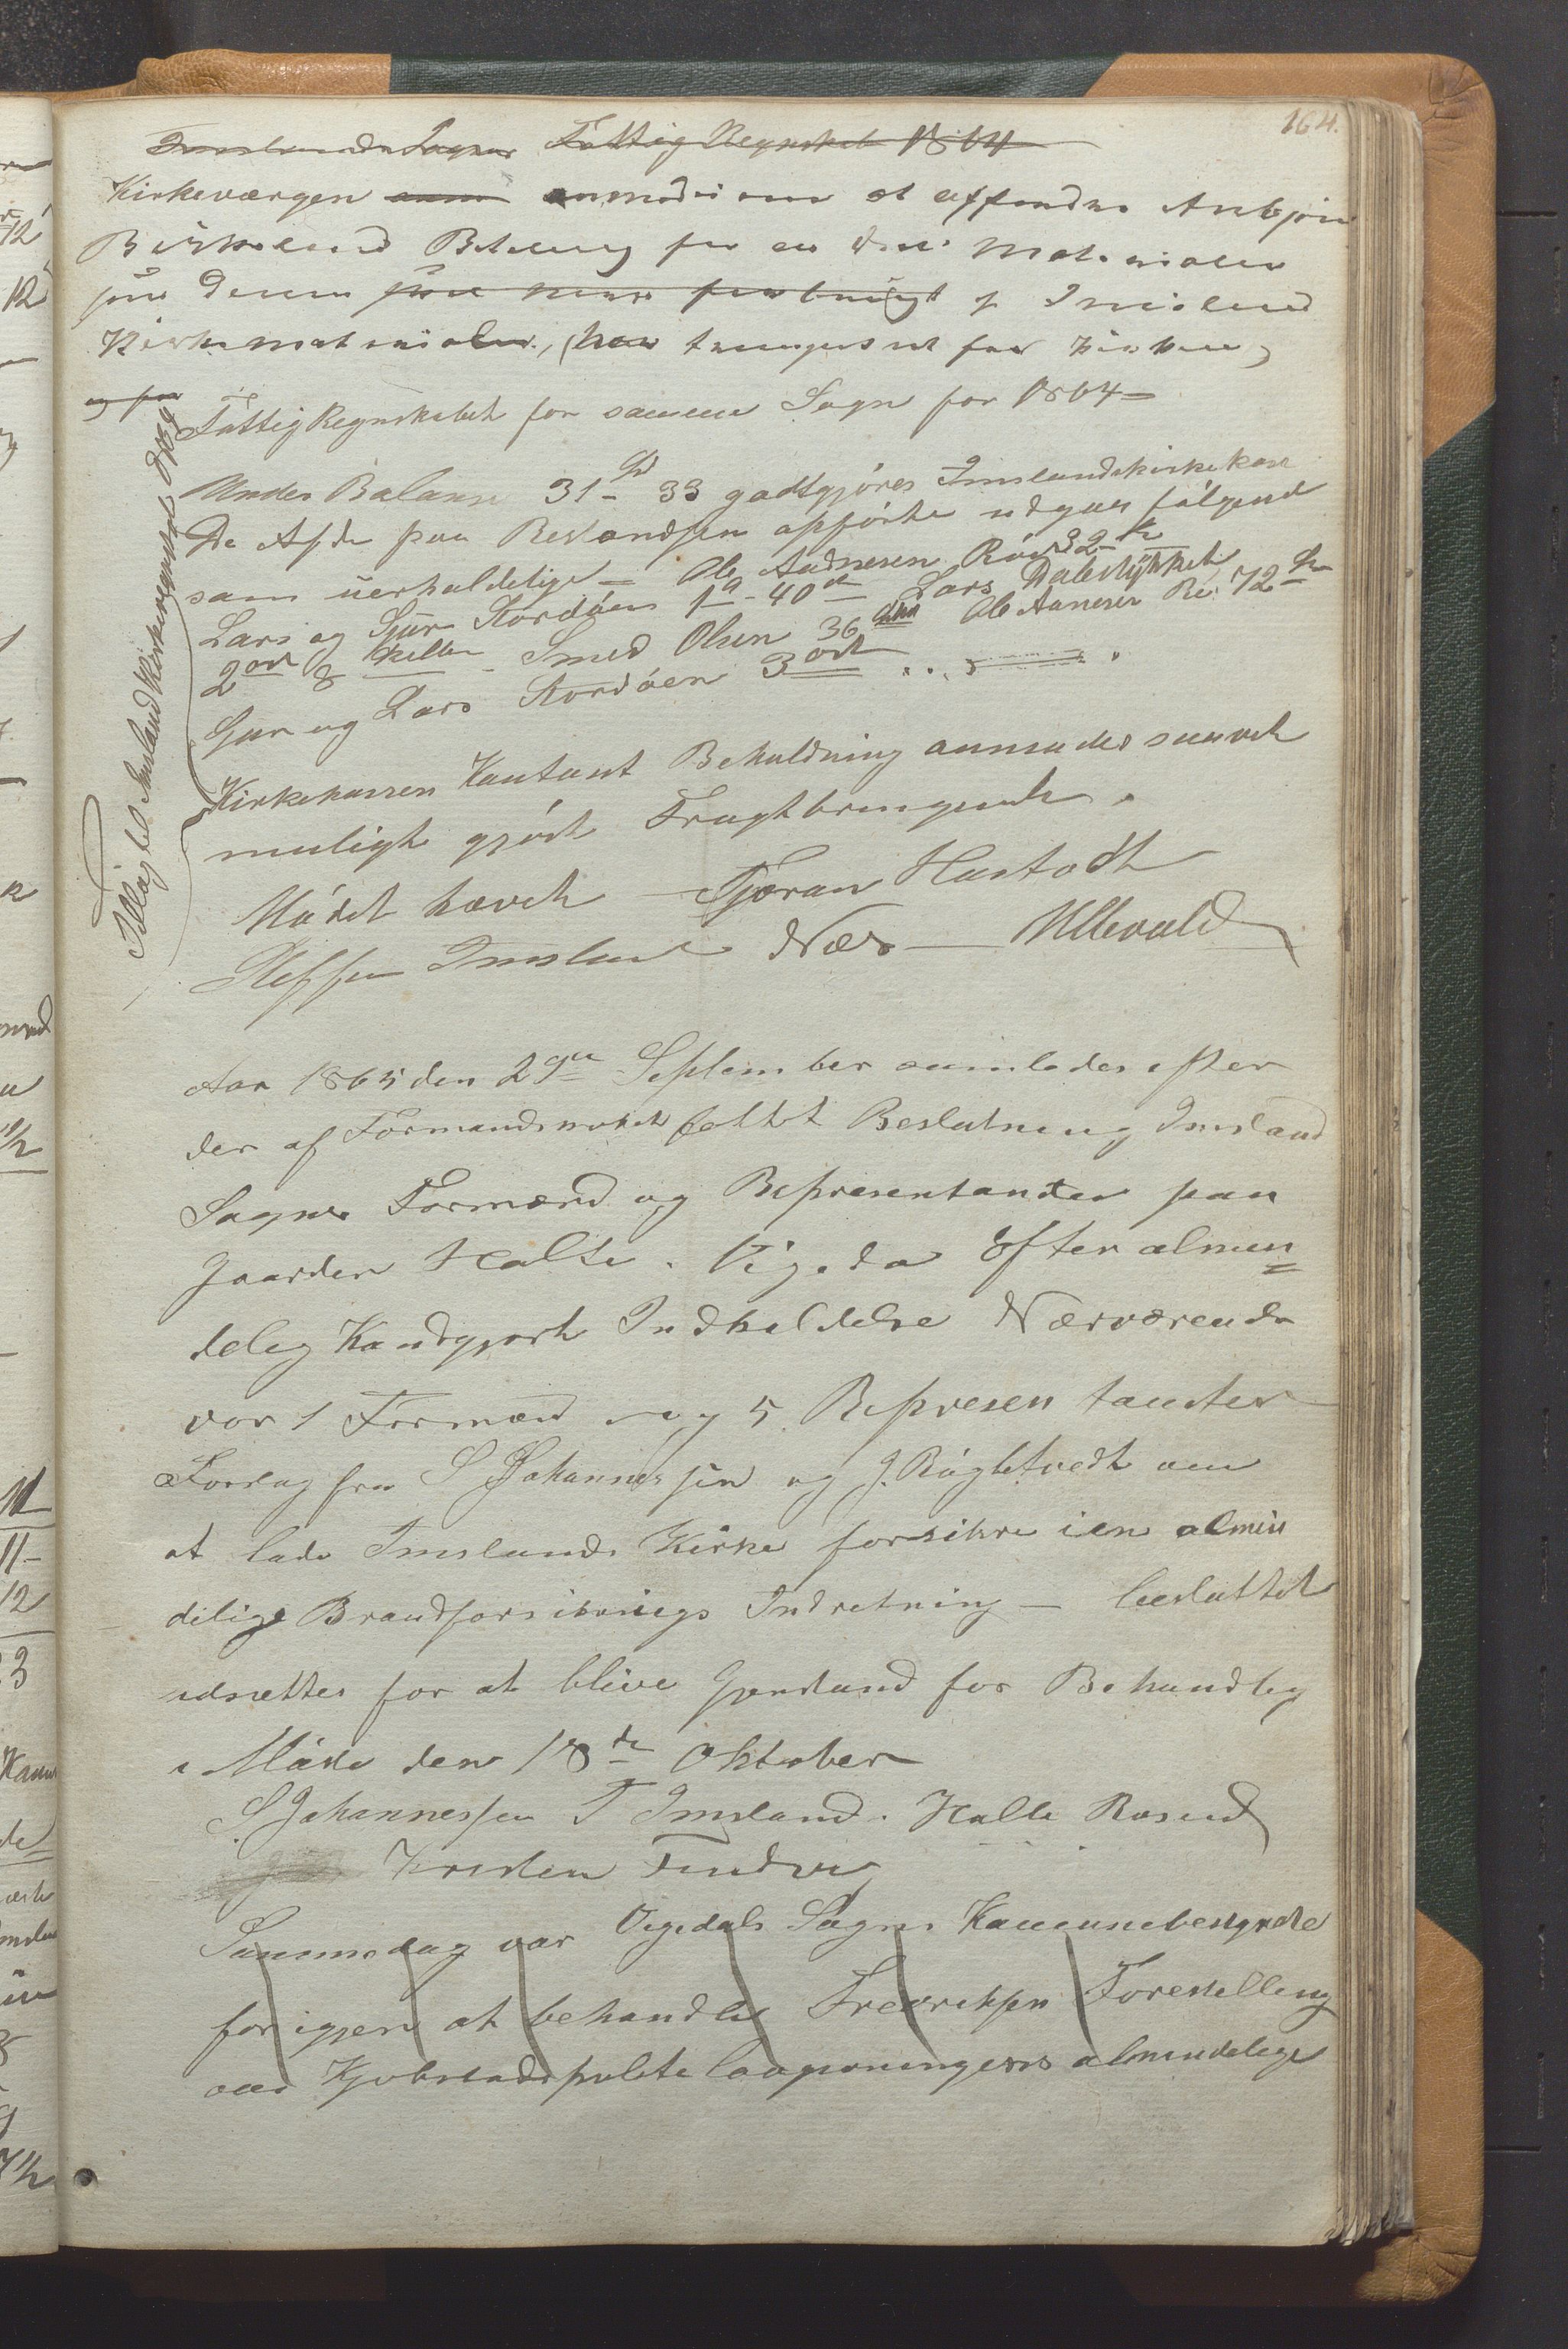 164.
Imslands Sogns Fattig Regnskab 1864
Kirkeværgen anmodes om at affordre Asbjørn
Birkeland Betaling for en Deel Materialer
som denne f Imsland
Kirkematerialer, (har trængtes ved for Kirken,
og for
Fattig Regnskabet for samme Sogn for 1864 -
Under Balanse 31 - 33 godtgjöres Imslandskirkekasse
De Afde paa Restandsen opförte udgaar fölgende
som uerholdelige - Ole Aadnesen Röd 32
Lars og Sjur Nordöen 1 - 40 Lars Dalestykket
2 ort 8 skilling - Smed Olsen 36 Ole Aanesen Rö 72
Gur og Lars Nordöen 3 ort
Kirkekassen Kontant Beholdning anmodes snarest
muligt gjört Frugtbringende.
Mödet hævet - Tjøran Hustoft
Steffen Imsland Næs - Ullevold
Tillæg til Imsland Kirkeregnskab
Aar 1865 den 29de September samledes efter
der af Formandsmødet fattet Beslutning Imsland
Sogns Formænd og Repræsentanter paa
Gaarden Halte i Vigedal Efter almin
delig Kundgjort Indkaldelse Nærværende
var 1 Formænd og 5 Represen tanter
Forslag fra S Johannessen og J. Røgletvedt om
at lade Imslands Kirke forsikre i en almin
delige Brandforsikrings Indretning - besluttet
udsættes for at blive Gjenstand for Behandlig
i Möde den 18de Oktober
S. Johannessen T Imsland. Halle Rosnd
Kristen
Sammedag var Vigedals Sogns Kommunebestyrelse
for igjen at behandle Fredriksen Forestilling
om Kjøbstadspolitelovgivningens almindelige